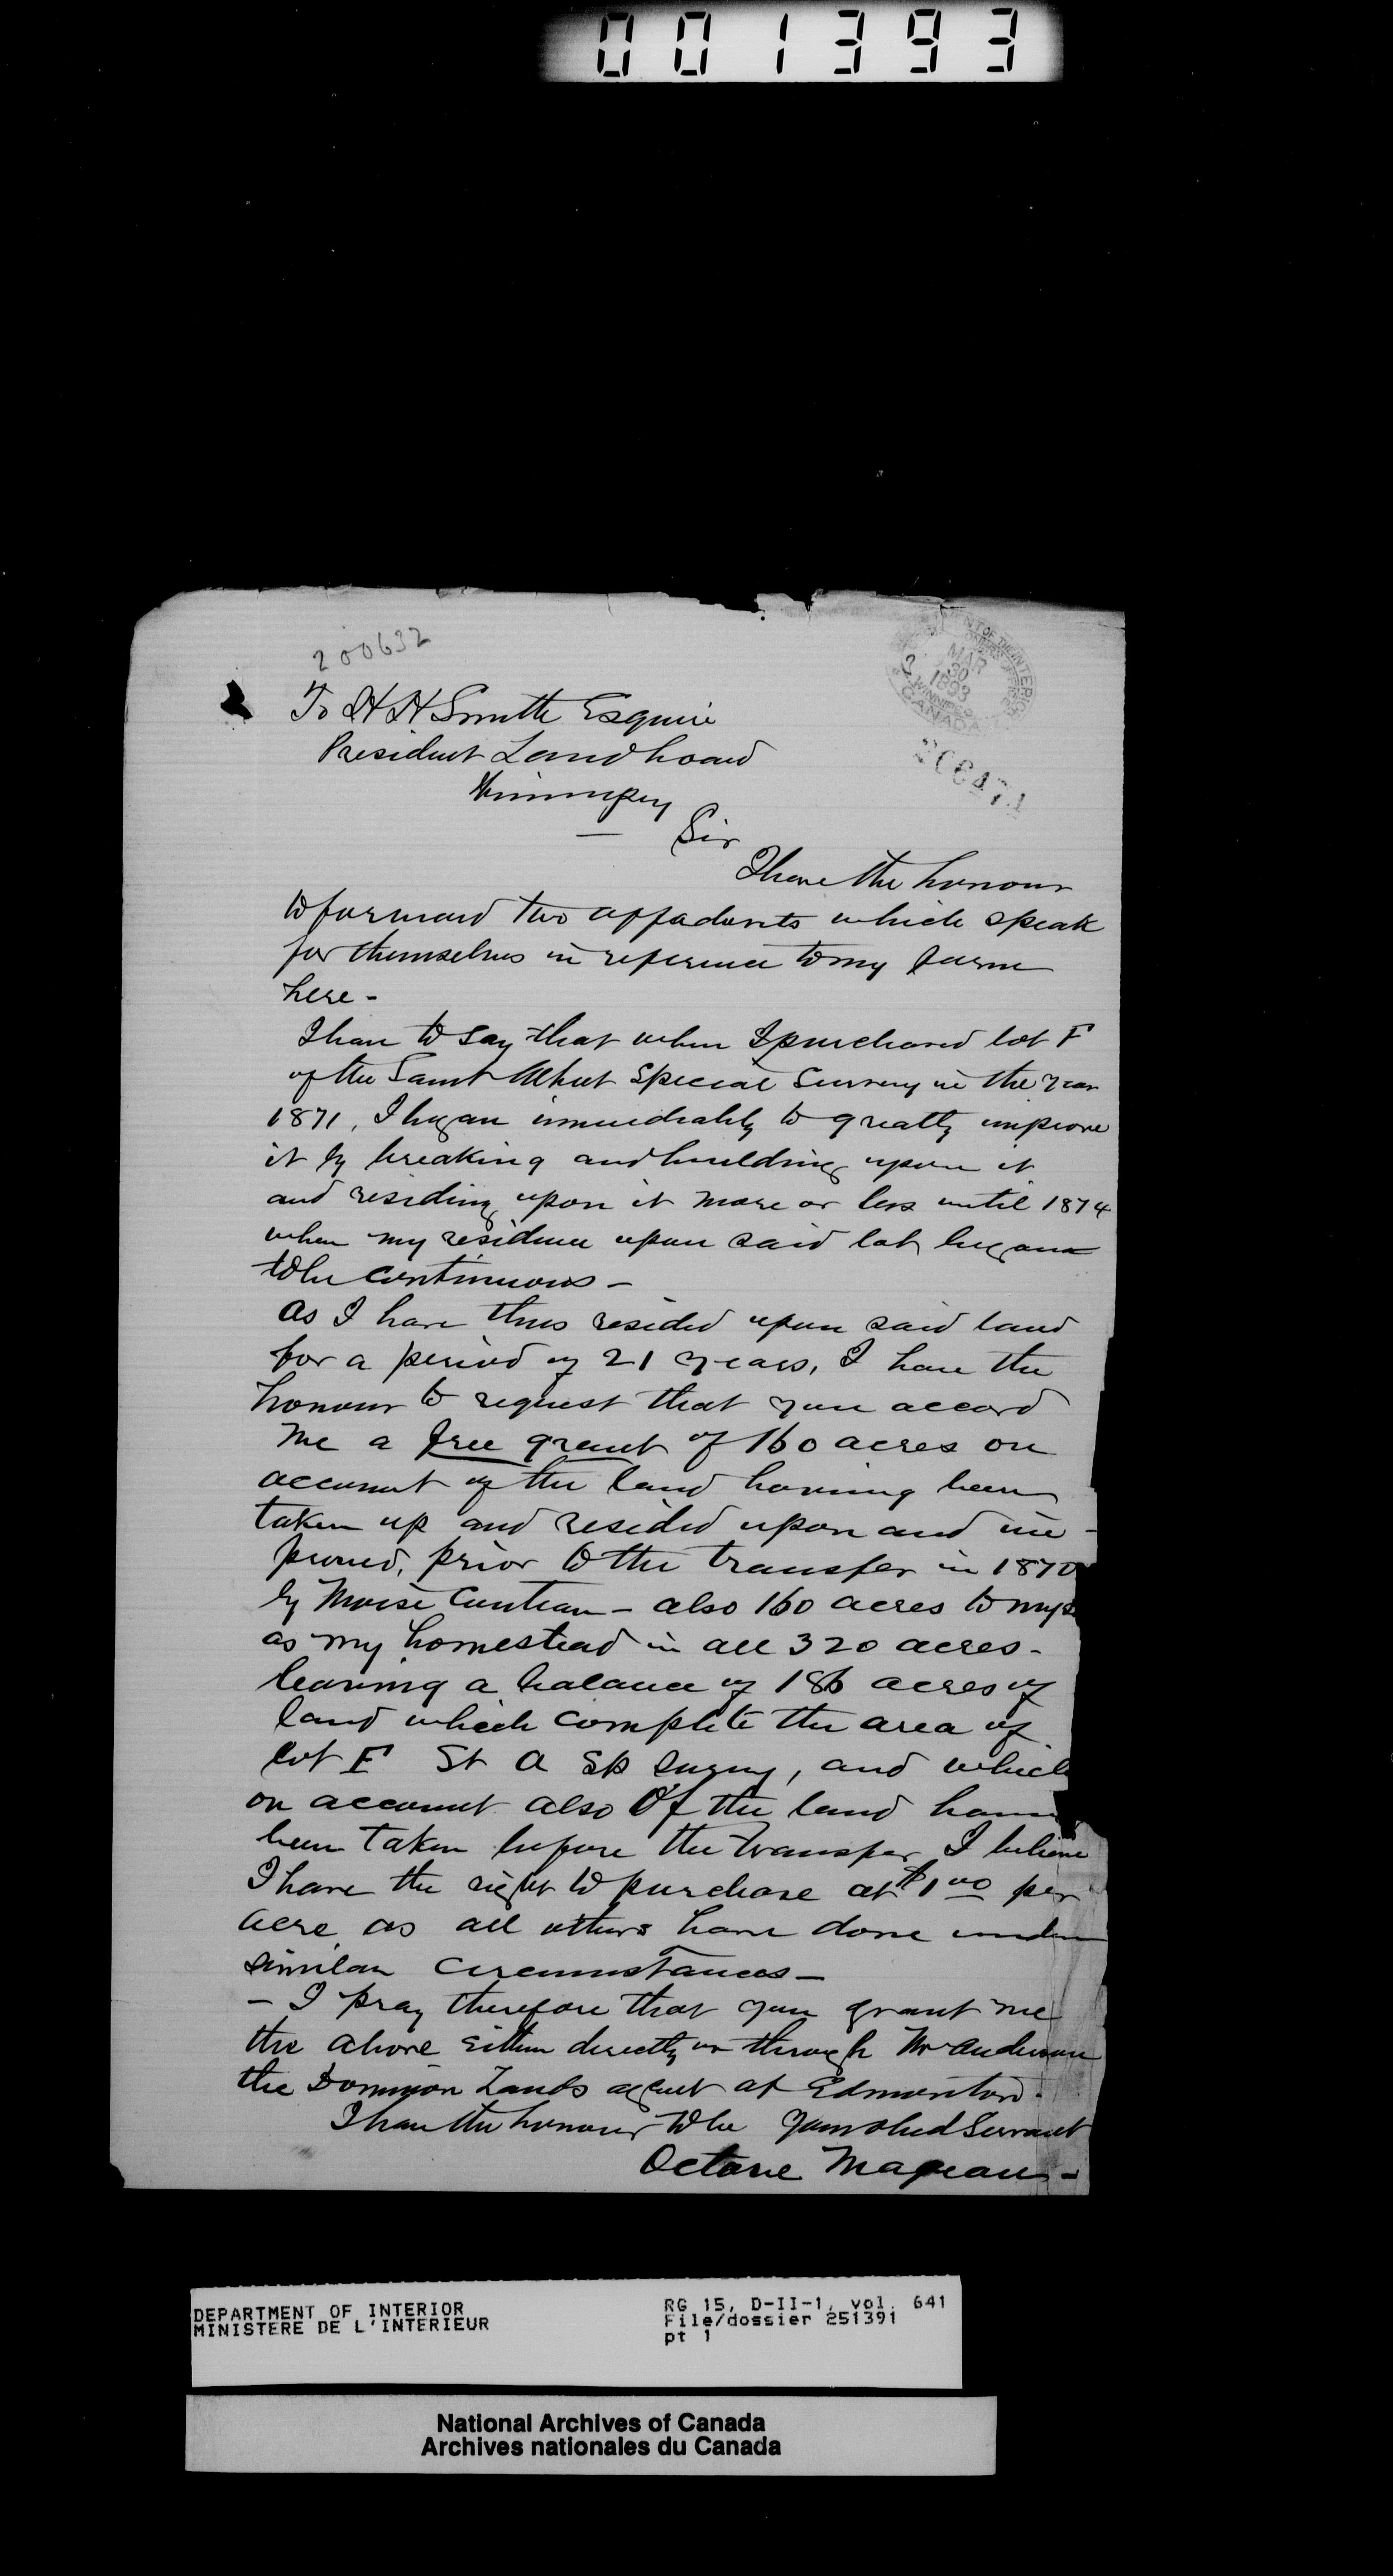 001393
200632
DEPARTMENT OF THE INTERIOR
MAR
30
1893
WINNIPEG
CANADA
206474
To H H Smith Esquire
President Land board
Winnipeg
Sir
I have the honour
to forward two affadavits which speak
for themselves in reference to my farm
here -
I have to say that when I purchased lot F
of the Saint Albert Special Survey in the year
1871, I began immediately to greatly improve
it by breaking and building upon it
and residing upon it more or less until 1874
when my residence upon said lot began
to be continuous -
As I have thus resided upon said land
for a period of 21 years, I have the
honour to request that you accord
me a free grant of 160 acres on
account of the land having been
taken up and resided upon and im-
proved, prior to the transfer in 1870
by Moise - also 160 acres to myse
as my homestead in all 320 acres -
leaving a balance of 186 acres of
land which complete the area of
lot F St A Sp Survey, and which
on account also of the land havin
been taken before the transfer I believe
I have the right to purchase at $1 00 per
acre as all others have done under
similar circumstances -
- I pray therefore that you grant me
the above either directly or through Mr Anderson
the Dominion Lands agent at Edmonton.
I have the honour to be your obed Servant
Octave Majeau -
DEPARTMENT OF INTERIOR
MINISTERE DE L'INTERIEUR
RG 15, D-II-1, vol. 641
File/dossier 251391
pt 1
National Archives of Canada
Archives nationales du Canada